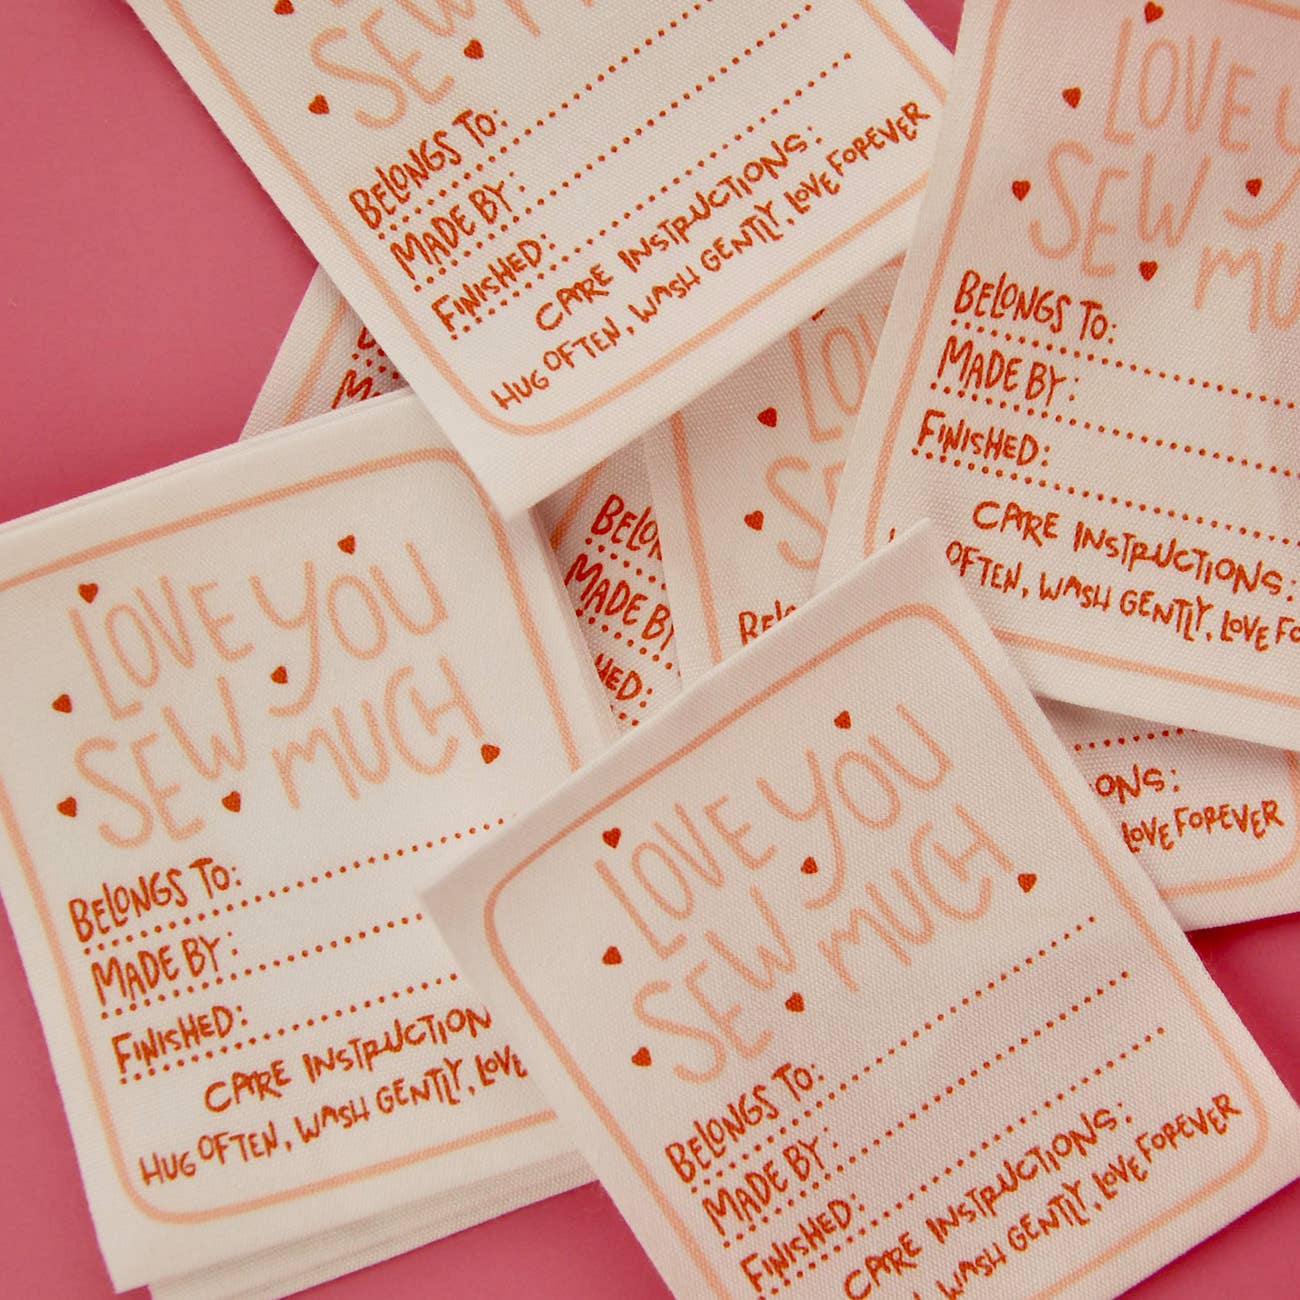 SEW
BELONGS TO:
MADE BY:
FINISHED:
CARE INSTRUCTIONS:
HUG OFTEN, WASH GENTLY, LOVE FOREVER
LOVE
SEW
BELONGS TO:
MADE BY:
FINISHED:
CARE INSTRUCTIONS:
OFTEN, WASH GENTLY, LOVE
LOVE YOU
SEW MUCH
BELONGS TO:
MADE BY:
FINISHED:
CARE INSTRUCTION
HUG OFTEN, WASH GENTLY, LOVE
MADE BY
LOVE FOREVER
LOVE YOU
SEW MUCH
BELONGS TO:
MADE BY:
FINISHED:
CARE INSTRUCTIONS:
WASH GENTLY, LOVE FOREVER